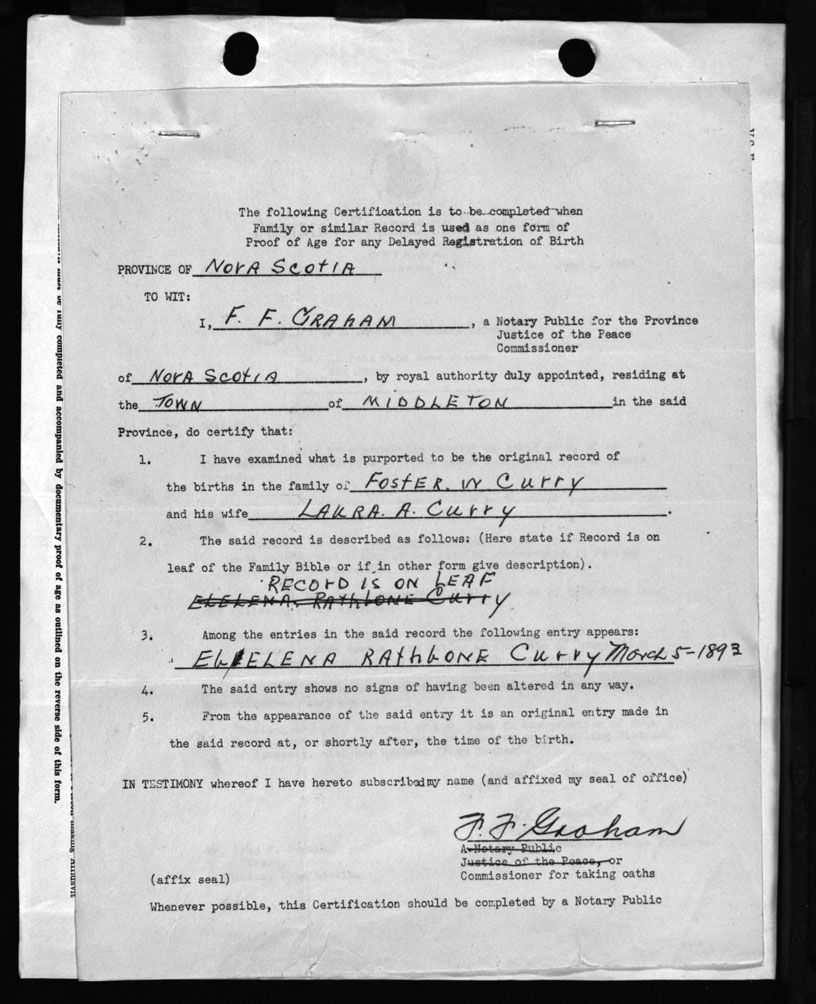 The following Certification is to be completed when
Family or similar Record is used as one form of
Proof of Age for any Delayed Registration of Birth
PROVINCE OF NOVA SCOTIA
TO WIT:
I, F. F. GRAHAM, a Notary Public for the Province
Justice of the Peace
Commissioner
of NOVA SCOTIA, by royal authority duly appointed, residing at
the TOWN of MIDDLETON in the said
Province, do certify that:
1. I have examined what is purported to be the original record of
the births in the family of FOSTER. W CURRY
and his wife LAURA. A. CURRY.
2. The said record is described as follows: (Here state if Record is on
leaf of the Family Bible or if in other form give description).
RECORD IS ON LEAF
ELELENA. RATHBONE CURRY
3. Among the entries in the said record the following entry appears:
ELELENA RATHBONE CURRY March 5-1893
4. The said entry shows no signs of having been altered in any way.
5. From the appearance of the said entry it is an original entry made in
the said record at, or shortly after, the time of the birth.
IN TESTIMONY whereof I have hereto subscribed my name (and affixed my seal of office)
F. F. Graham
A Notary Public
Justice of the Peace, or
(affix seal) Commissioner for taking oaths
Whenever possible, this Certification should be completed by a Notary Public
must be fully completed and accompanied by documentary proof of age as outlined on the reverse side of this form.